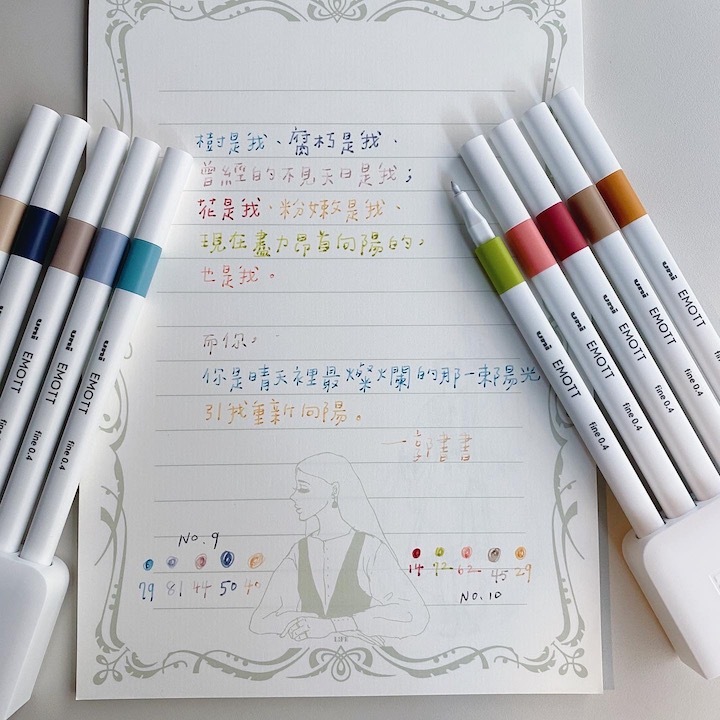 樹是我、腐朽是我、
曾經的不見天日是我；
花是我、粉嫩是我、
現在盡力昂首向陽的，
也是我。
而你，
你是晴天裡最燦爛的那一束陽光
引我重新向陽。
—郭書書
No. 9
79 81 44 50 40
14 72 62 45 29
No. 10
LIFE
uni EMOTT fine 0.4
uni EMOTT fine 0.4
uni EMOTT fine 0.4
uni EMOTT fine 0.4
uni EMOTT fine 0.4
uni EMOTT fine 0.4
uni EMOTT fine 0.4
uni EMOTT fine 0.4